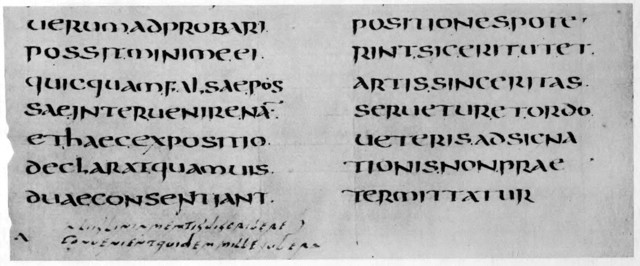 UERUMADPROBARI
POSSITMINIMEEI
QUICQUAMFALSAEPOS
SAEINTERUENIRENĀ
ETHAECEXPOSITIO
DECLARATQUAMUIS
DUAECONSENTIANT
conuenientquidemmille
POSITIONESPOTE
RINTSICERITUTET
ARTISSINCERITAS
SERUETURETORDO
UETERISADSIGNA
TIONISNONPRAE
TERMITTATUR